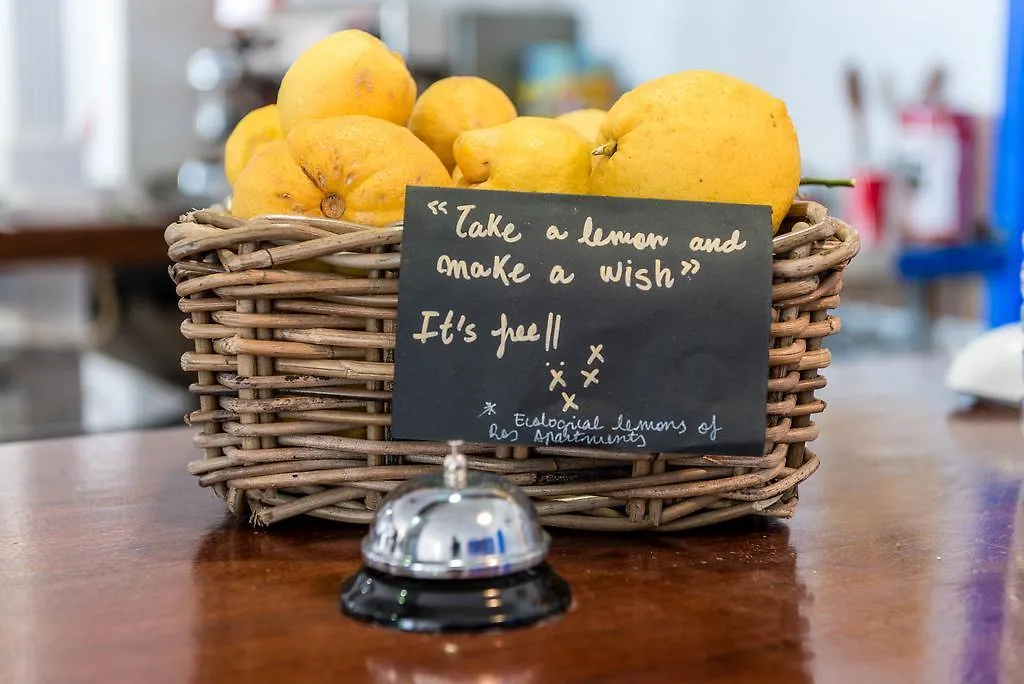 “Take a lemon and
make a wish”
It's free!!
x
x x
x
* Ecological lemons of
Ros Apartments